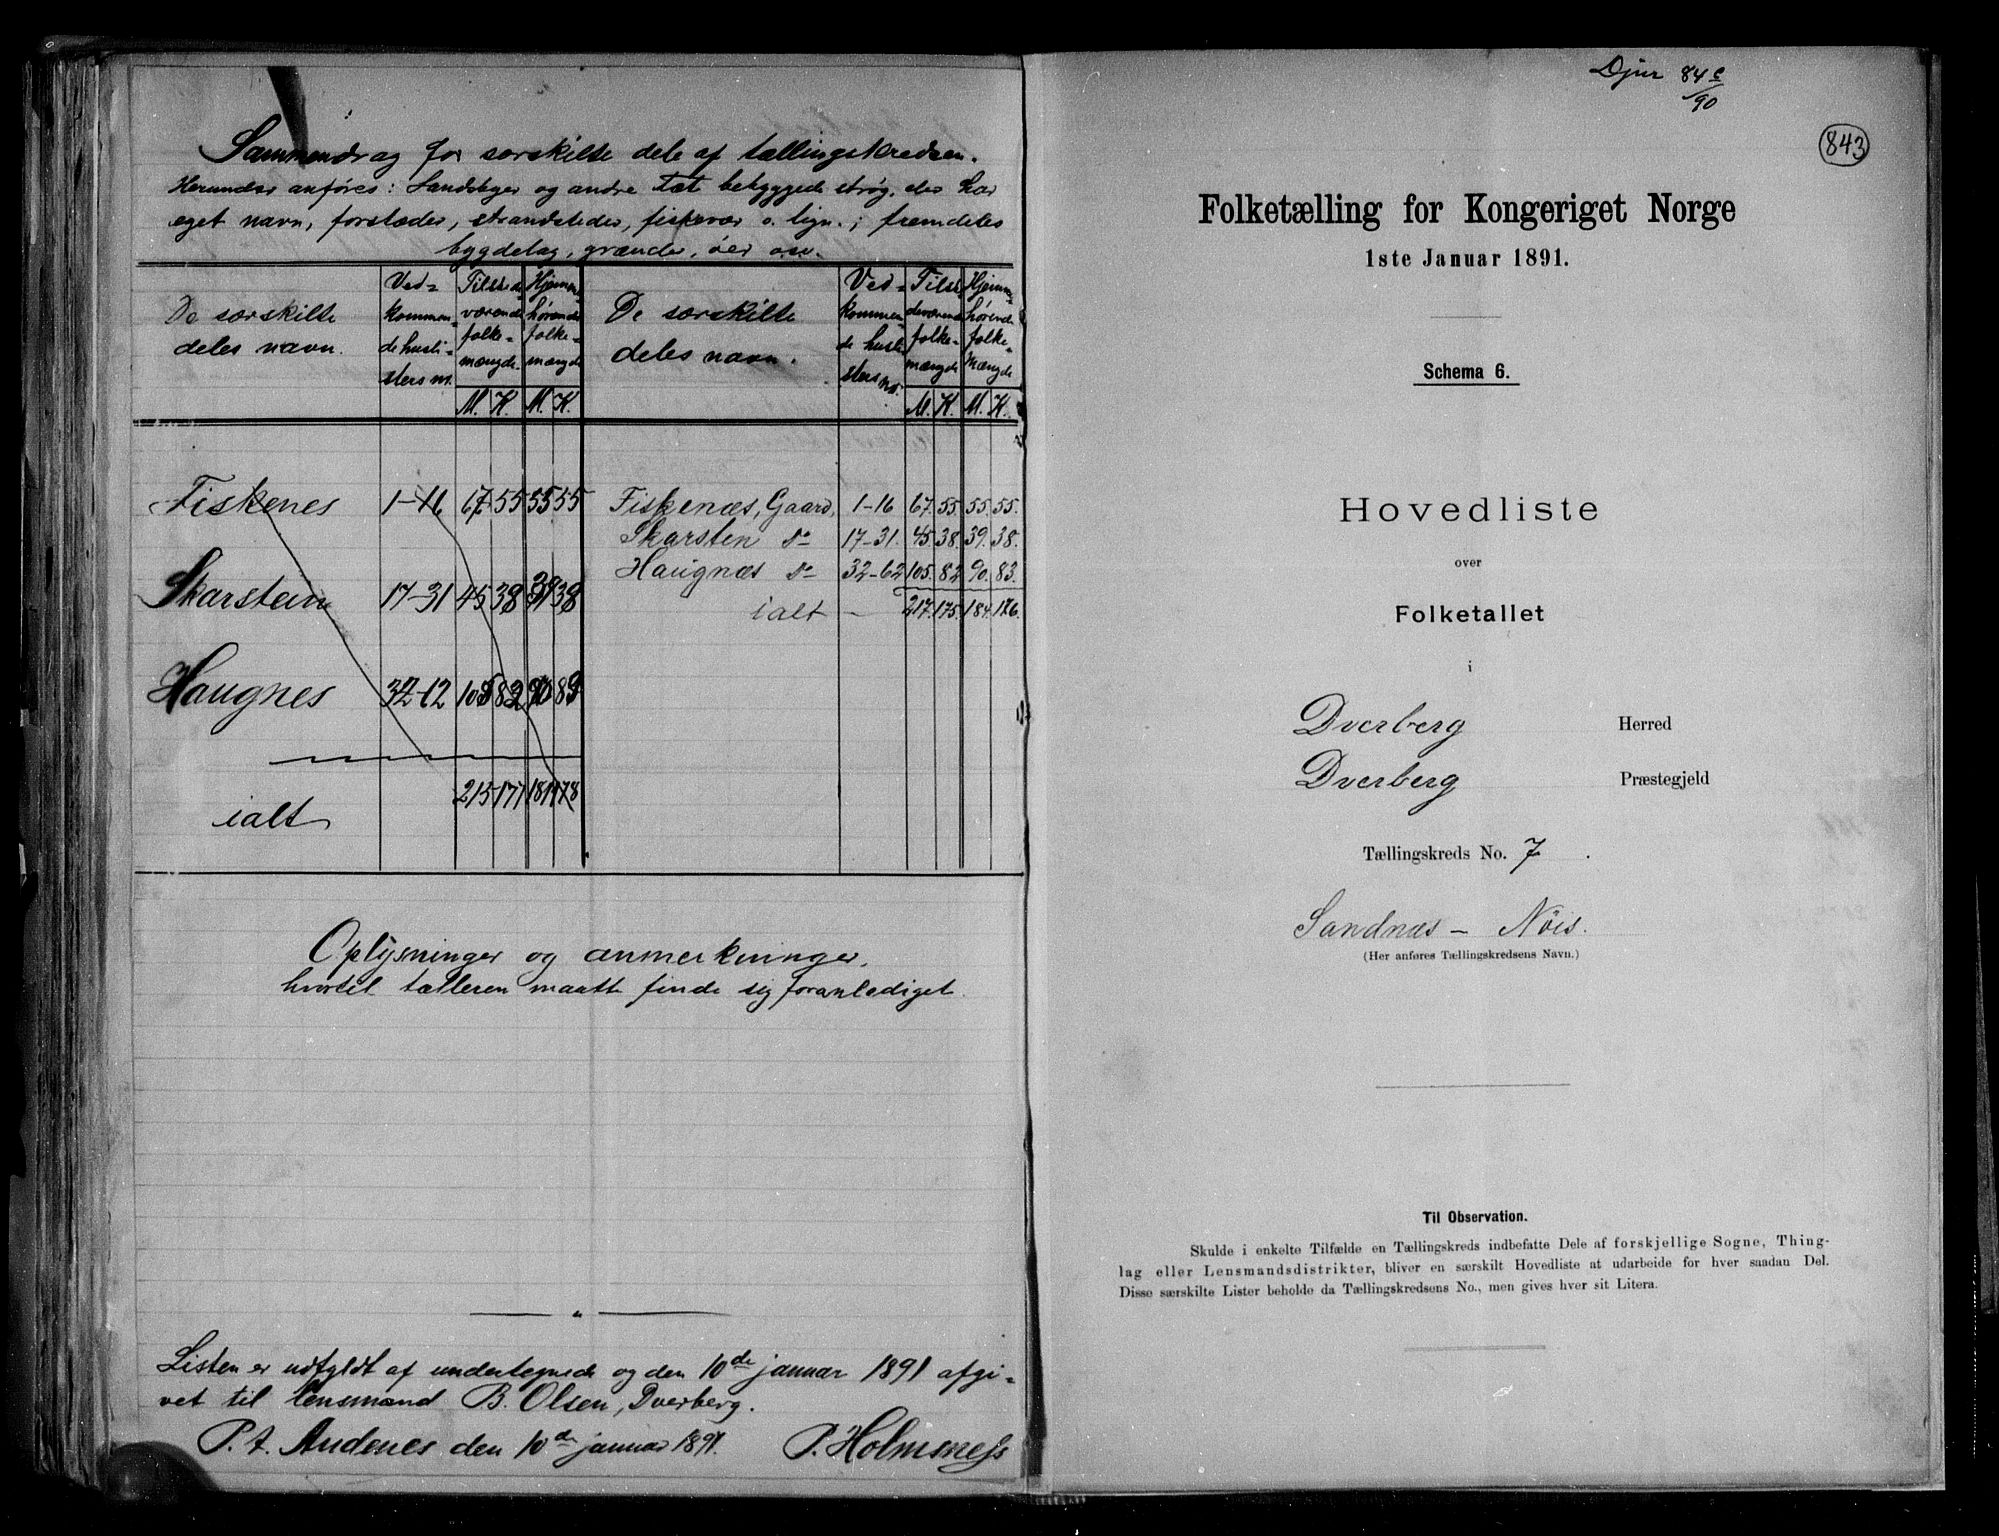 Sammendrag for særskilte dele af tællingskredsen.
Herunder anføres: Landsbyer og andre tæt bebyggede strøg, der har
eget navn, forstæder, strandsteder, fiskevær o. lign.; fremdeles
bygdelag, grænder, øer osv.
De særskilte deles navn.
Vedkommende huslisters nr.
Tilstedeværende folkemængde.
Hjemmehørende folkemængde
De særskilte deles navn.
Vedkommende huslisters nr.
Tilstedeværende folkemængde
Hjemmehørende folkemængde
M. K. M. K. M. K. M. K.
Fiskenes 1-16 67 55 55 55
Skarstein 17-31 45 38 39 38
Haugnes 32-12 105 82 90 83
ialt 215 177
Fiskenæs, Gaard, 1-16 67. 55. 55. 55.
Skarsten do 17-31. 45. 38. 39. 38.
Haugnæs do 32-62 105. 82 90. 83.
ialt - 217. 175. 184. 176.
Oplysninger og anmerkninger,
hvortil tælleren maatte finde sig foranlediget.
Listen er udfyldt af undertegnede og den 10de januar 1891 afgi-
vet til lensmand B. Olsen, Dverberg.
P. t. Andenes den 10de januar 1891. P. Holmsness
84 90
843
Folketælling for Kongeriget Norge
1ste Januar 1891.
Schema 6.
Hovedliste
over
Folketallet
i
Dverberg Herred
Dverberg Præstegjeld
Tællingskreds No. 7.
Sandnæs - Nöis.
(Her anføres Tællingskredsens Navn.)
Til Observation.
Skulde i enkelte Tilfælde en Tællingskreds indbefatte Dele af forskjellige Sogne, Thing-
lag eller Lensmandsdistrikter, bliver en særskilt Hovedliste at udarbeide for hver saadan Del.
Disse særskilte Lister beholde da Tællingskredsens No., men gives hver sit Litera.